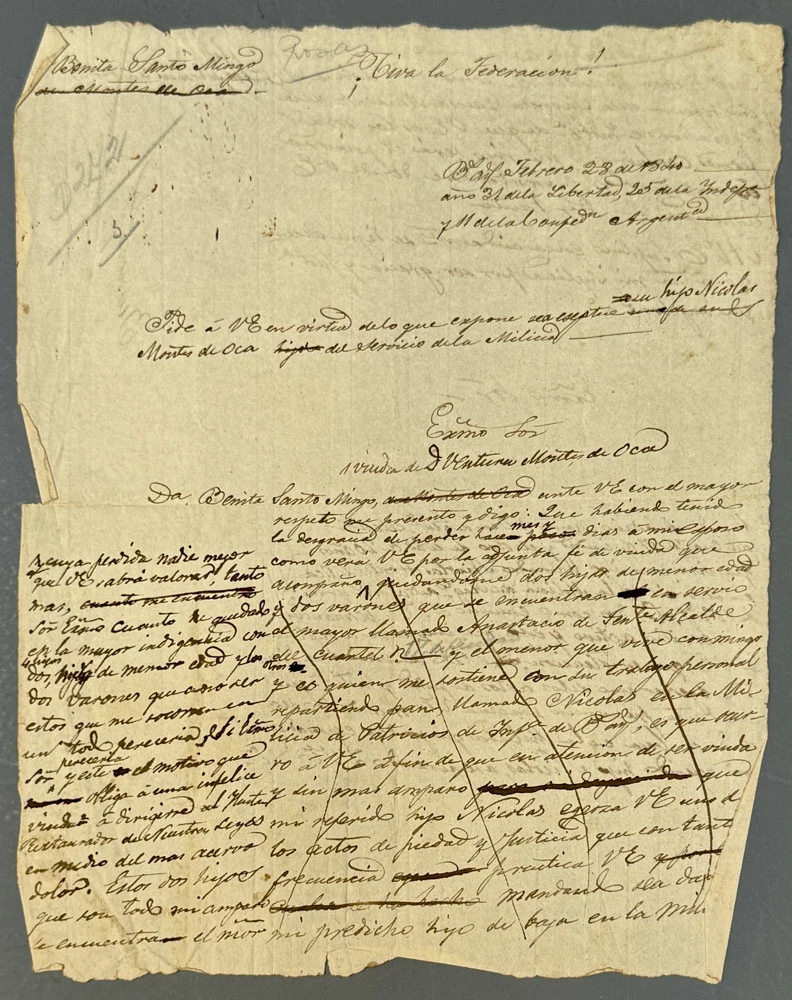 Benita Santo Mingo
de Montes de Oca
¡Viva la Federacion!
242
3
Bs. As. Febrero 28 de 1840
año 31 de la Libertad, 25 de la Indepa
y 11 de la Confedn Argentina
su hijo Nicolas
Pide á VE en virtud de lo que expone sea exceptue uno de sus
Montes de Oca hijo del Servicio de la Milicia
Exmo Sor
viuda de D Ventura Montes de Oca
Da. Benita Santo Mingo, de Montes de Oca ante VE con el mayor
respeto me presento y digo: Que habiendo tenido
la desgracia de perder hace meses dias á mi esposo
como verá VE por la adjunta fé de viuda que
acompaño, quedandome dos hijas de menor edad
y dos varones que se encuentran en servicio
el mayor llamado Anastacio de Tente Alcalde
del Cuartel n y el menor que vive conmigo
y es quien me sostiene con su trabajo personal
repartiendo pan llamado Nicolas en la Mi-
licia de Patricios de Infa de Bs As, es que recur-
ro á VE á fin de que en atencion de ser viuda
y sin mas amparo que
mi referido hijo Nicolas egersa VE uno de
los actos de piedad y Justicia que con tanta
frecuencia practica VE y por
mandando sea dado
mi predicho hijo de baja en la Mili
cuya perdida nadie mejor
que VE sabrá valorar, tanto
mas, cuanto me encuentro
Sor Exmo cuanto he quedado
en la mayor indigencia con
4 hijos
dos hijas de menor edad y los otros
dos varones que á no ser
estos que me socorren en
un todo pereceria. Si Exmo
pereceria
Sor y este es el motivo que
obliga á una infelice
viuda á dirigirse al Ilustre
Restaurador de Nuestras Leyes
en medio del mas acervo
dolor. Estos dos hijos
que son todo mi amparo
se encuentran el mor